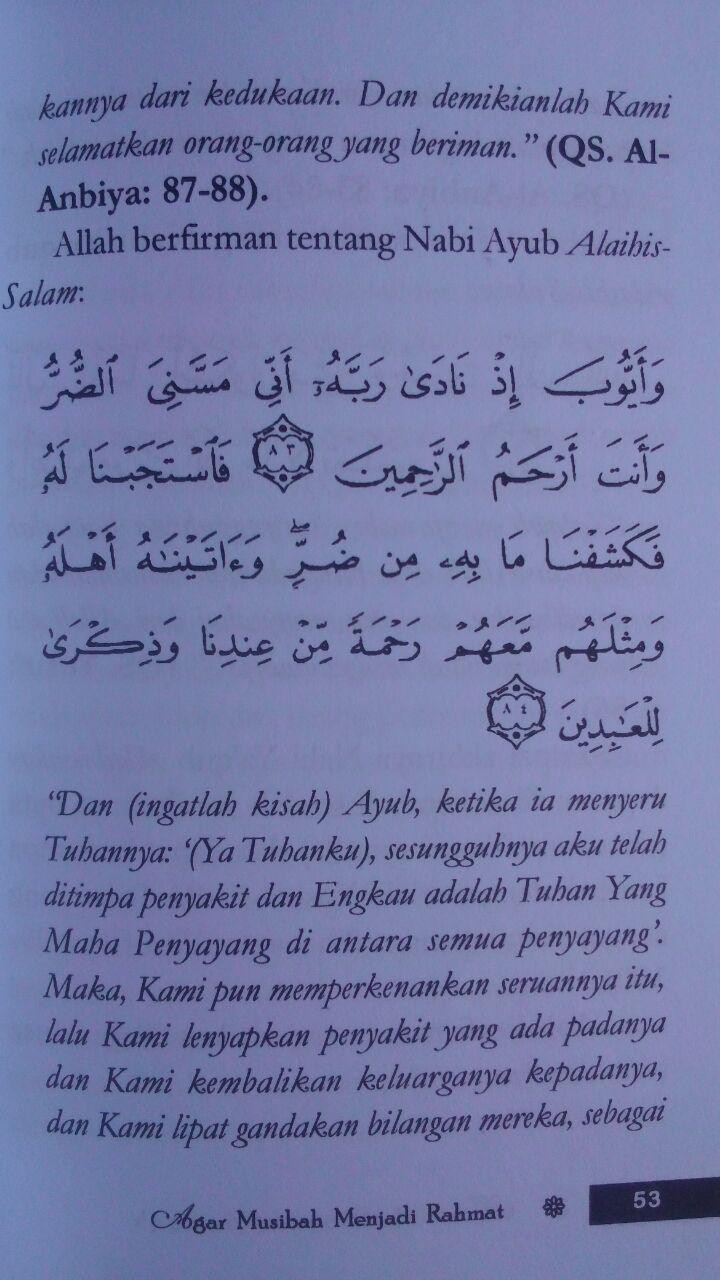 kannya dari kedukaan. Dan demikianlah Kami
selamatkan orang-orang yang beriman.” (QS. Al-
Anbiya: 87-88).
Allah berfirman tentang Nabi Ayub Alaihis-
Salam:
وَأَيُّوبَ إِذْ نَادَىٰ رَبَّهُۥٓ أَنِّى مَسَّنِىَ ٱلضُّرُّ
وَأَنتَ أَرْحَمُ ٱلرَّٰحِمِينَ ٨٣ فَٱسْتَجَبْنَا لَهُۥ
فَكَشَفْنَا مَا بِهِۦ مِن ضُرٍّۖ وَءَاتَيْنَٰهُ أَهْلَهُۥ
وَمِثْلَهُم مَّعَهُمْ رَحْمَةً مِّنْ عِندِنَا وَذِكْرَىٰ
لِلْعَٰبِدِينَ ٨٤
“Dan (ingatlah kisah) Ayub, ketika ia menyeru
Tuhannya: ‘(Ya Tuhanku), sesungguhnya aku telah
ditimpa penyakit dan Engkau adalah Tuhan Yang
Maha Penyayang di antara semua penyayang’.
Maka, Kami pun memperkenankan seruannya itu,
lalu Kami lenyapkan penyakit yang ada padanya
dan Kami kembalikan keluarganya kepadanya,
dan Kami lipat gandakan bilangan mereka, sebagai
Agar Musibah Menjadi Rahmat 53